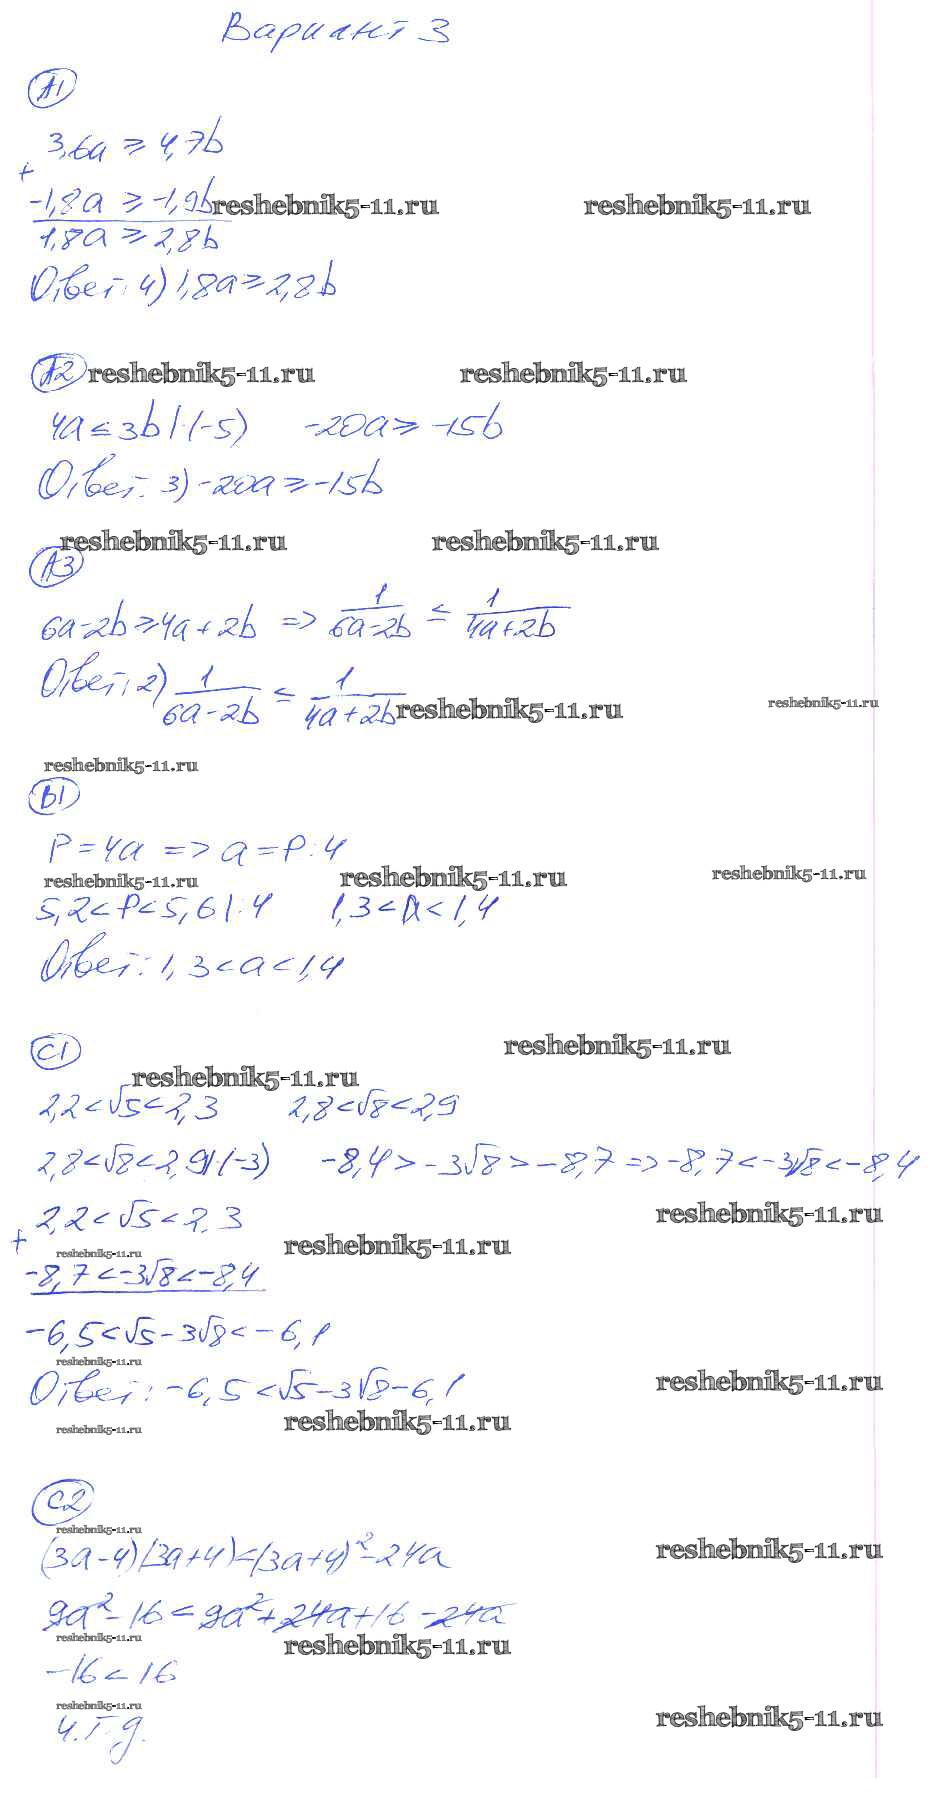 Вариант 3
А1
3,6a ≥ 4,7b
+
-1,8a ≥ -1,9b reshebnik5-11.ru reshebnik5-11.ru
1,8a ≥ 2,8b
Ответ: 4) 1,8a ≥ 2,8b
А2 reshebnik5-11.ru reshebnik5-11.ru
4a ≤ 3b |·(-5) -20a ≥ -15b
Ответ: 3) -20a ≥ -15b
reshebnik5-11.ru reshebnik5-11.ru
А3
6a-2b ≥ 4a+2b => 1/(6a-2b) ≤ 1/(4a+2b)
Ответ: 2) 1/(6a-2b) ≤ 1/(4a+2b) reshebnik5-11.ru reshebnik5-11.ru
reshebnik5-11.ru
В1
P=4a => a=P:4
reshebnik5-11.ru reshebnik5-11.ru reshebnik5-11.ru
5,2<P<5,6 |:4 1,3<a<1,4
Ответ: 1,3<a<1,4
С1 reshebnik5-11.ru
reshebnik5-11.ru
2,2<√5<2,3 2,8<√8<2,9
2,8<√8<2,9 |·(-3) -8,4>-3√8>-8,7 => -8,7<-3√8<-8,4
2,2<√5<2,3 reshebnik5-11.ru
+
reshebnik5-11.ru reshebnik5-11.ru
-8,7<-3√8<-8,4
-6,5<√5-3√8<-6,1
reshebnik5-11.ru
Ответ: -6,5<√5-3√8-6,1 reshebnik5-11.ru
reshebnik5-11.ru reshebnik5-11.ru
С2
reshebnik5-11.ru
(3a-4)(3a+4)<(3a+4)²-24a reshebnik5-11.ru
9a²-16<9a²+24a+16-24a
reshebnik5-11.ru reshebnik5-11.ru
-16<16
reshebnik5-11.ru
ч.т.д. reshebnik5-11.ru